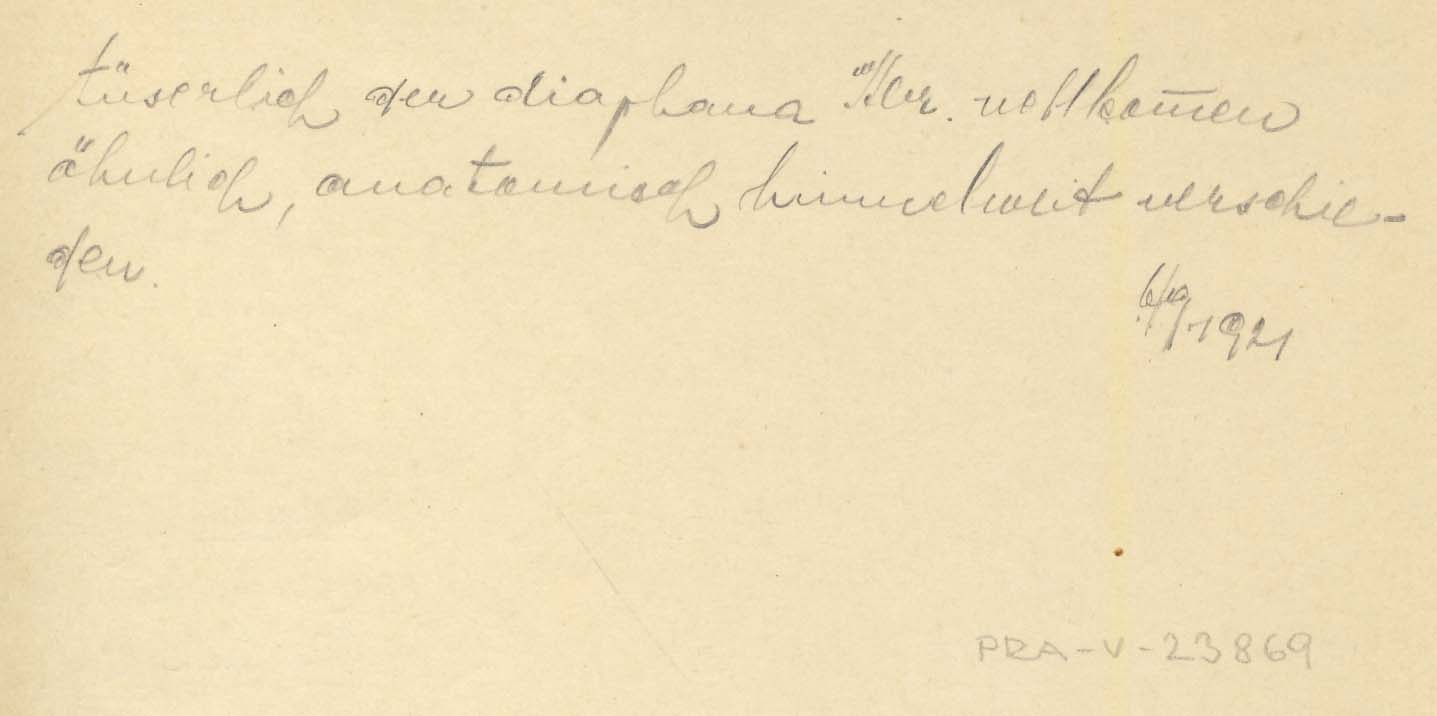 äusserlich der diaphana Kbr. vollkom̅en
ähnlich, anatomisch himmelweit verschie-
den.
6/9 1921
PRA-V-23869